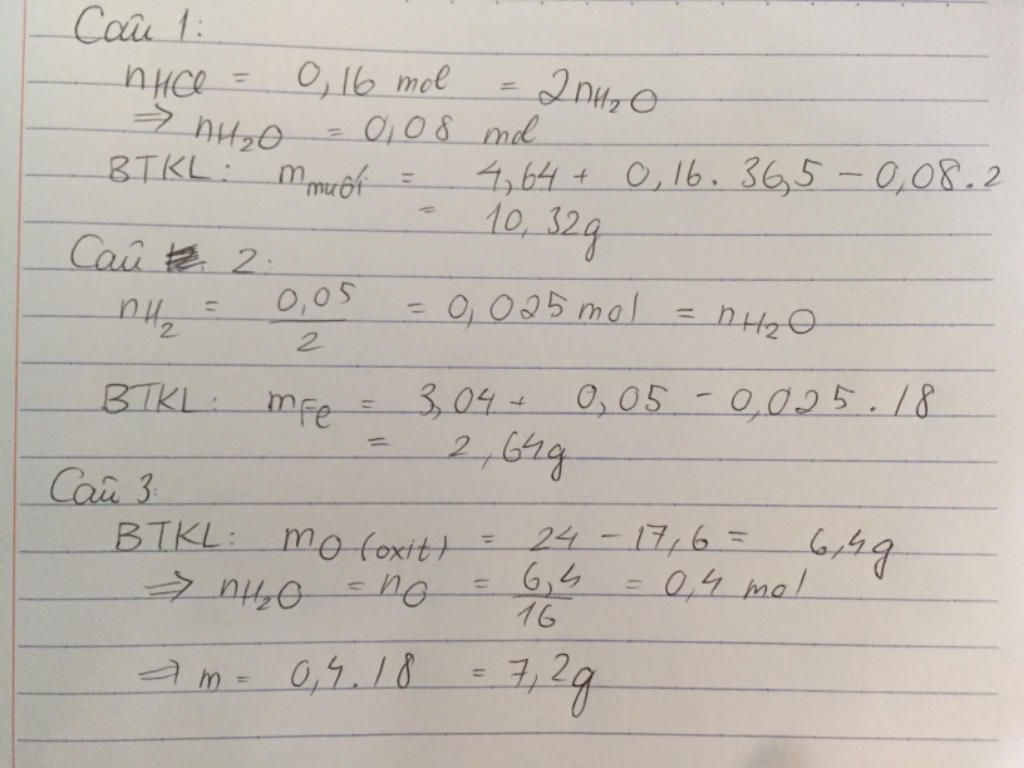 Câu 1:
nHCl = 0,16 mol = 2nH2O
⇒ nH2O = 0,08 mol
BTKL: mmuối = 4,64 + 0,16. 36,5 - 0,08.2
= 10,32g
Câu 2:
nH2 = 0,05/2 = 0,025 mol = nH2O
BTKL: mFe = 3,04 + 0,05 - 0,025.18
= 2,64g
Câu 3:
BTKL: mO (oxit) = 24 - 17,6 = 6,4g
⇒ nH2O = nO = 6,4/16 = 0,4 mol
⇒ m = 0,4.18 = 7,2g